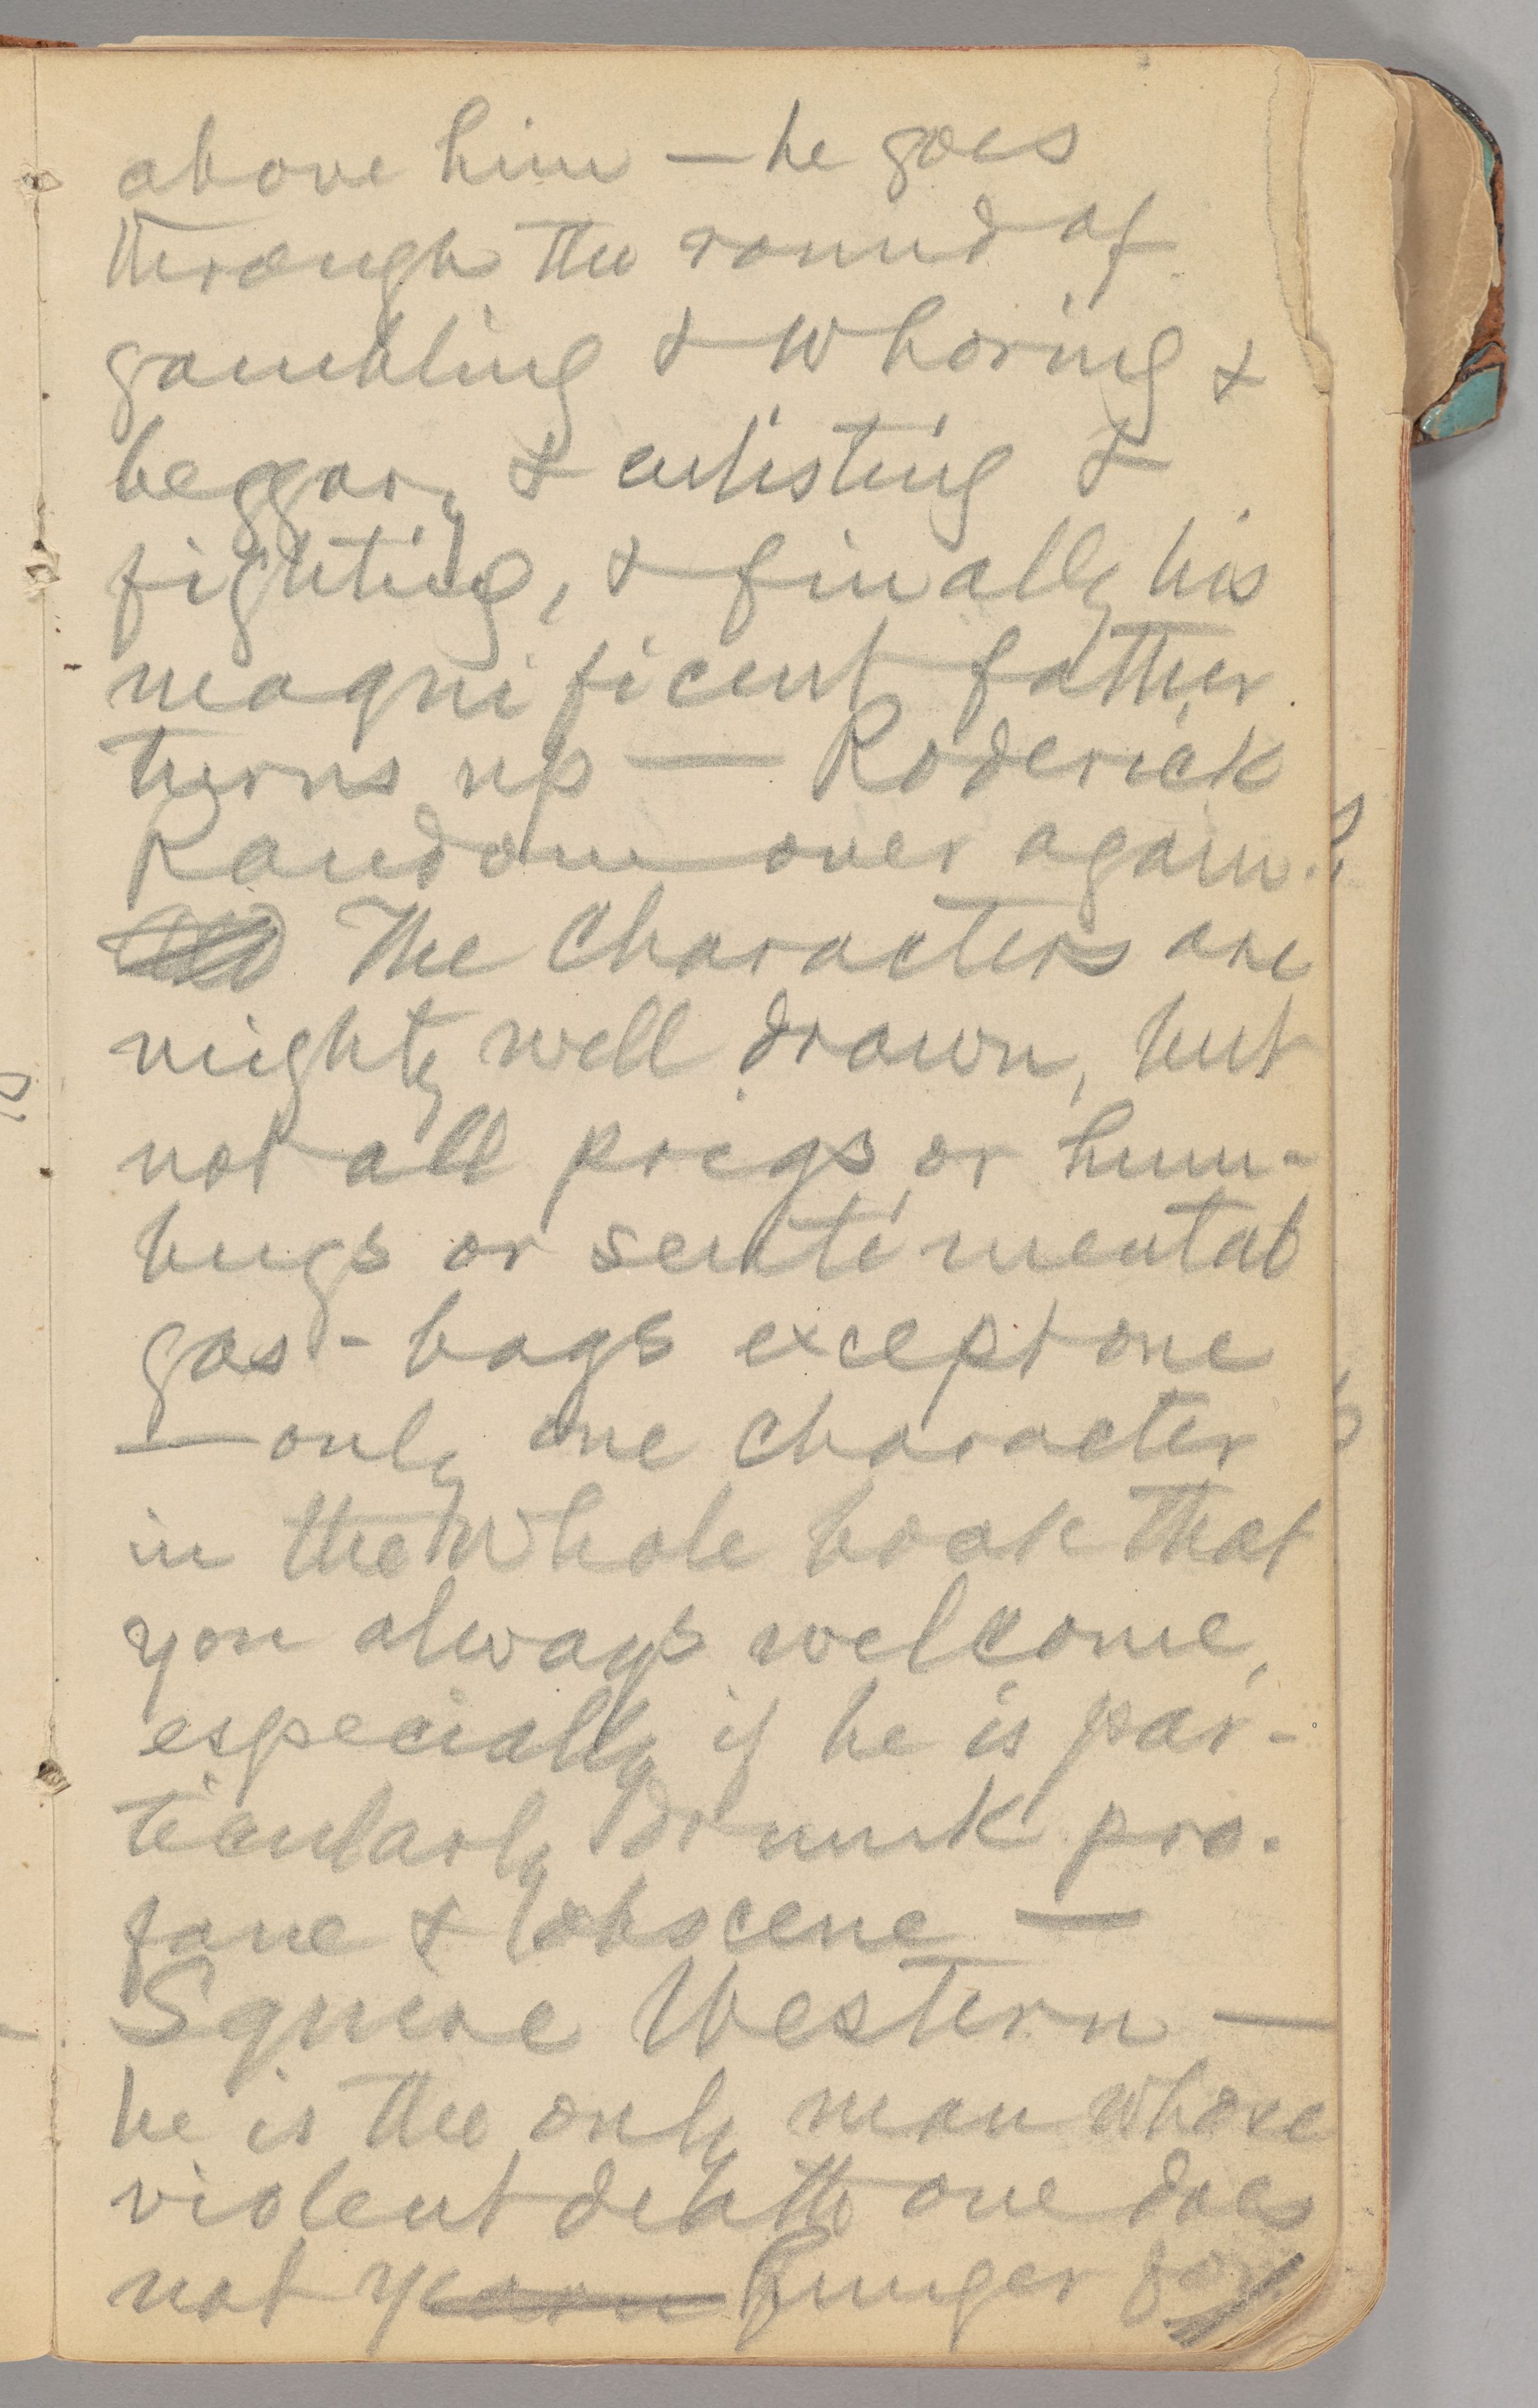 above him — he goes
through the round of
gambling & whoring &
beggary & enlisting &
fighting, & finally his
magnificent father
turns up — Roderick
Random over again.
The characters are
mighty well drawn, but
not all prigs or hum-
bugs or sentimental
gas-bags except one
— only one character
in the whole book that
you always welcome,
especially if he is par-
ticularly drunk pro-
fane & obscene —
Squire Western —
he is the only man whose
violent death one does
not yearn hunger for